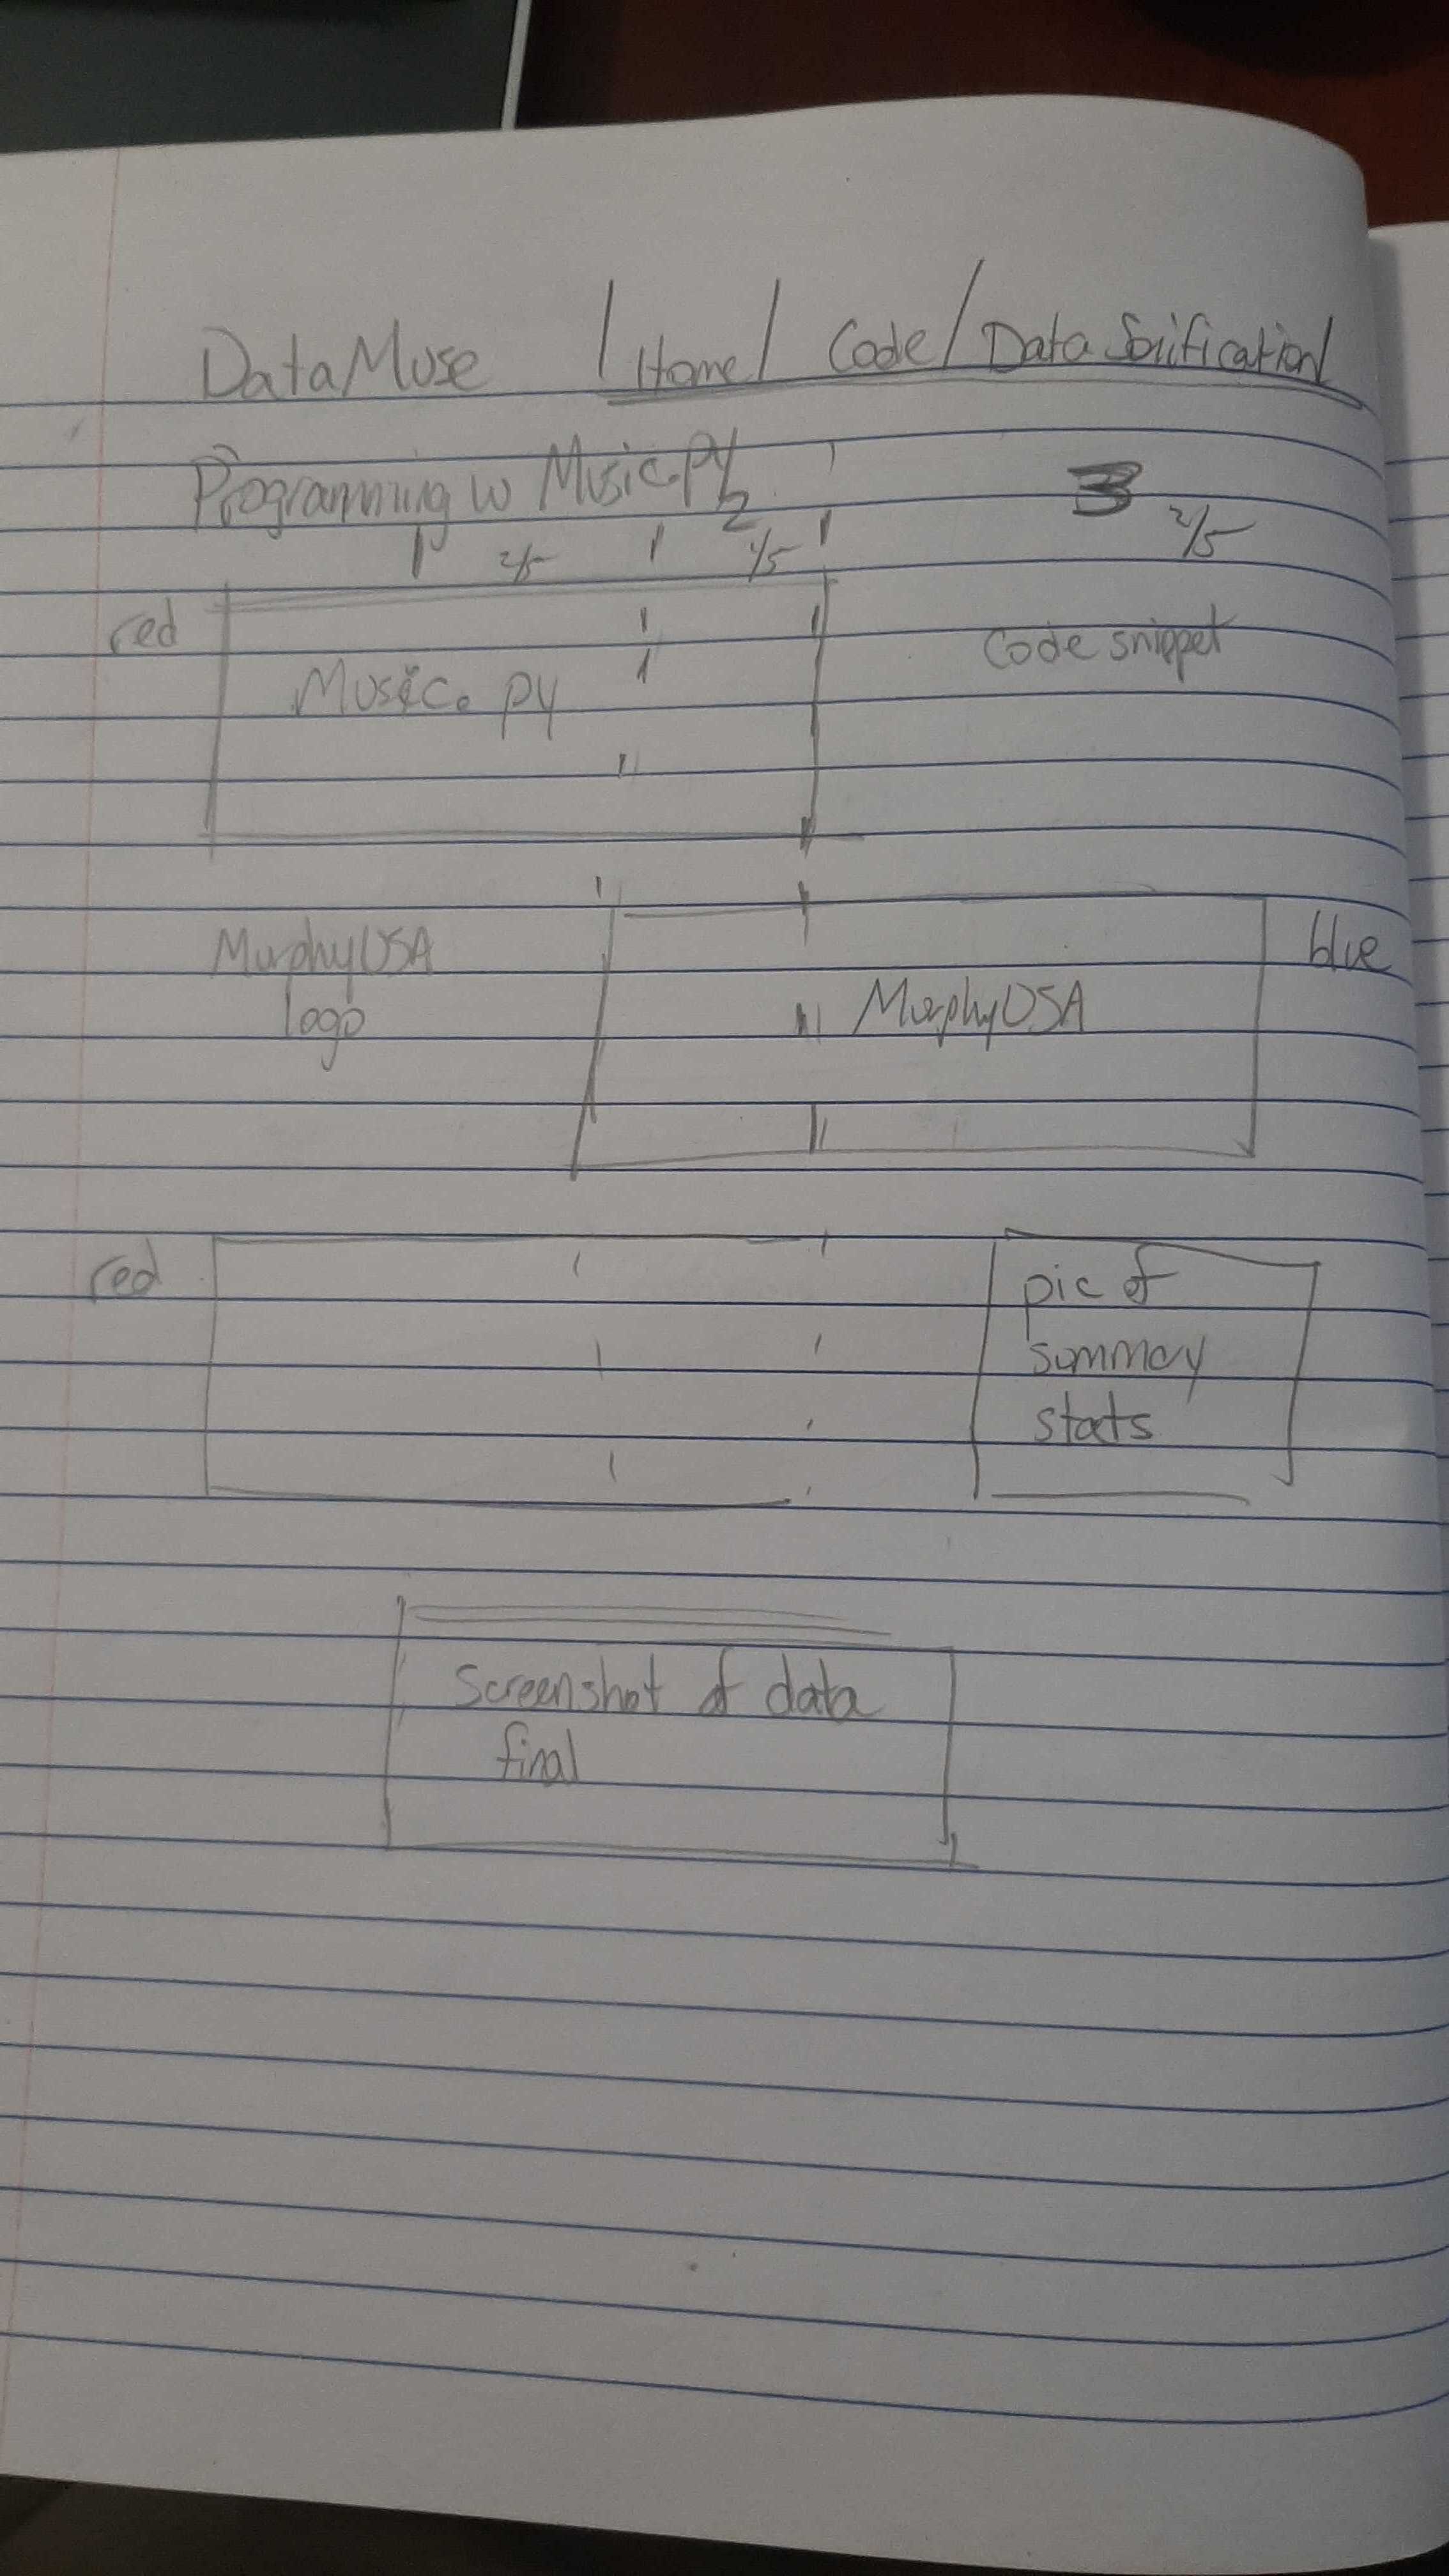 DataMuse / Home / Code / Data Sonification
Programming w Music.py
1 2/5 2 1/5 3 2/5
red
Music.py
Code snippet
MurphyUSA
logo
MurphyUSA
blue
red
pic of
summary
stats
Screenshot of data
final